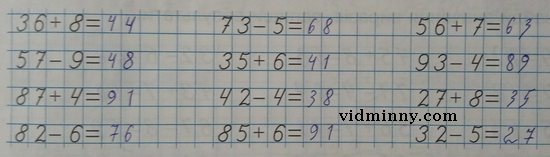 36+8=44 73-5=68 56+7=63
57-9=48 35+6=41 93-4=89
87+4=91 42-4=38 27+8=35
vidminny.com
82-6=76 85+6=91 32-5=27